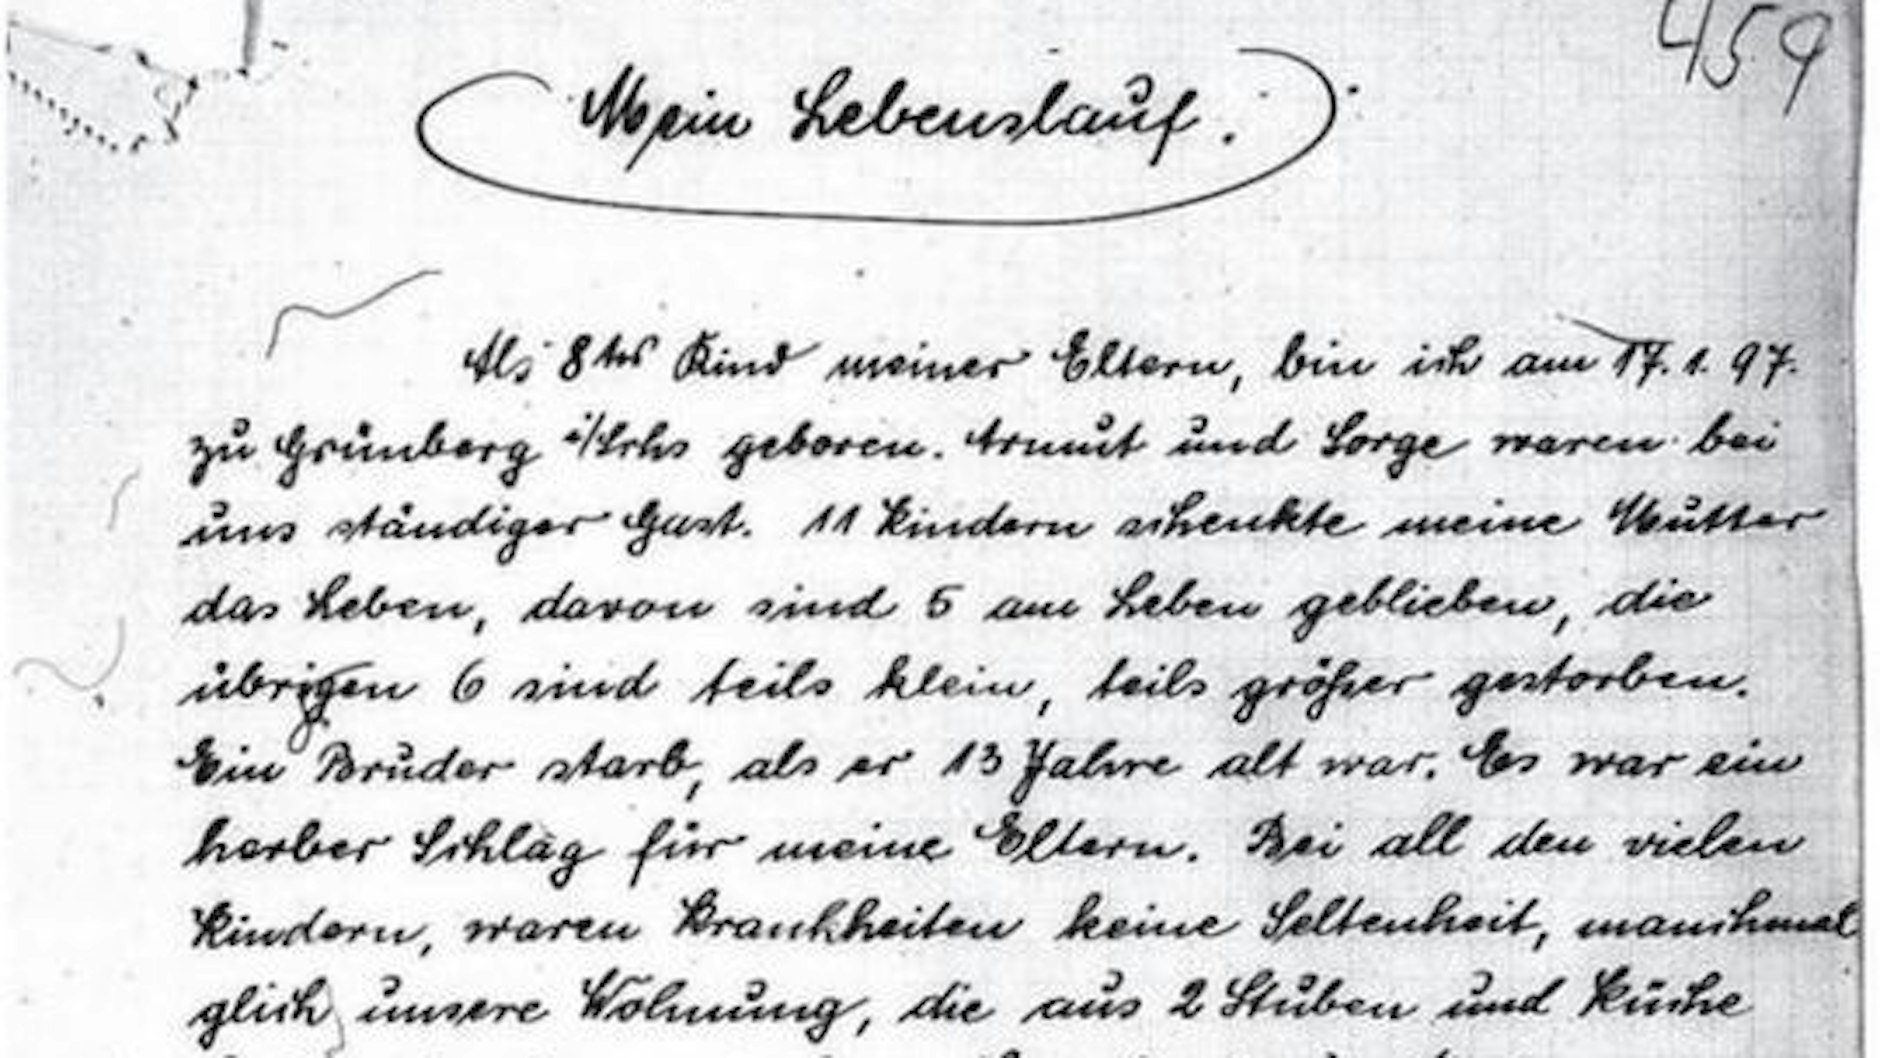 459
Mein Lebenslauf.
Als 8tes Kind meiner Eltern, bin ich am 17. 1. 97.
zu Grünberg i/Schs geboren. Armut und Sorge waren bei
uns ständiger Gast. 11 Kindern schenkte meine Mutter
das Leben, davon sind 5 am Leben geblieben, die
übrigen 6 sind teils klein, teils größer gestorben.
Ein Bruder starb, als er 13 Jahre alt war. Es war ein
herber Schlag für meine Eltern. Bei all den vielen
Kindern, waren Krankheiten keine Seltenheit, manchmal
glich unsere Wohnung, die aus 2 Stuben und Küche